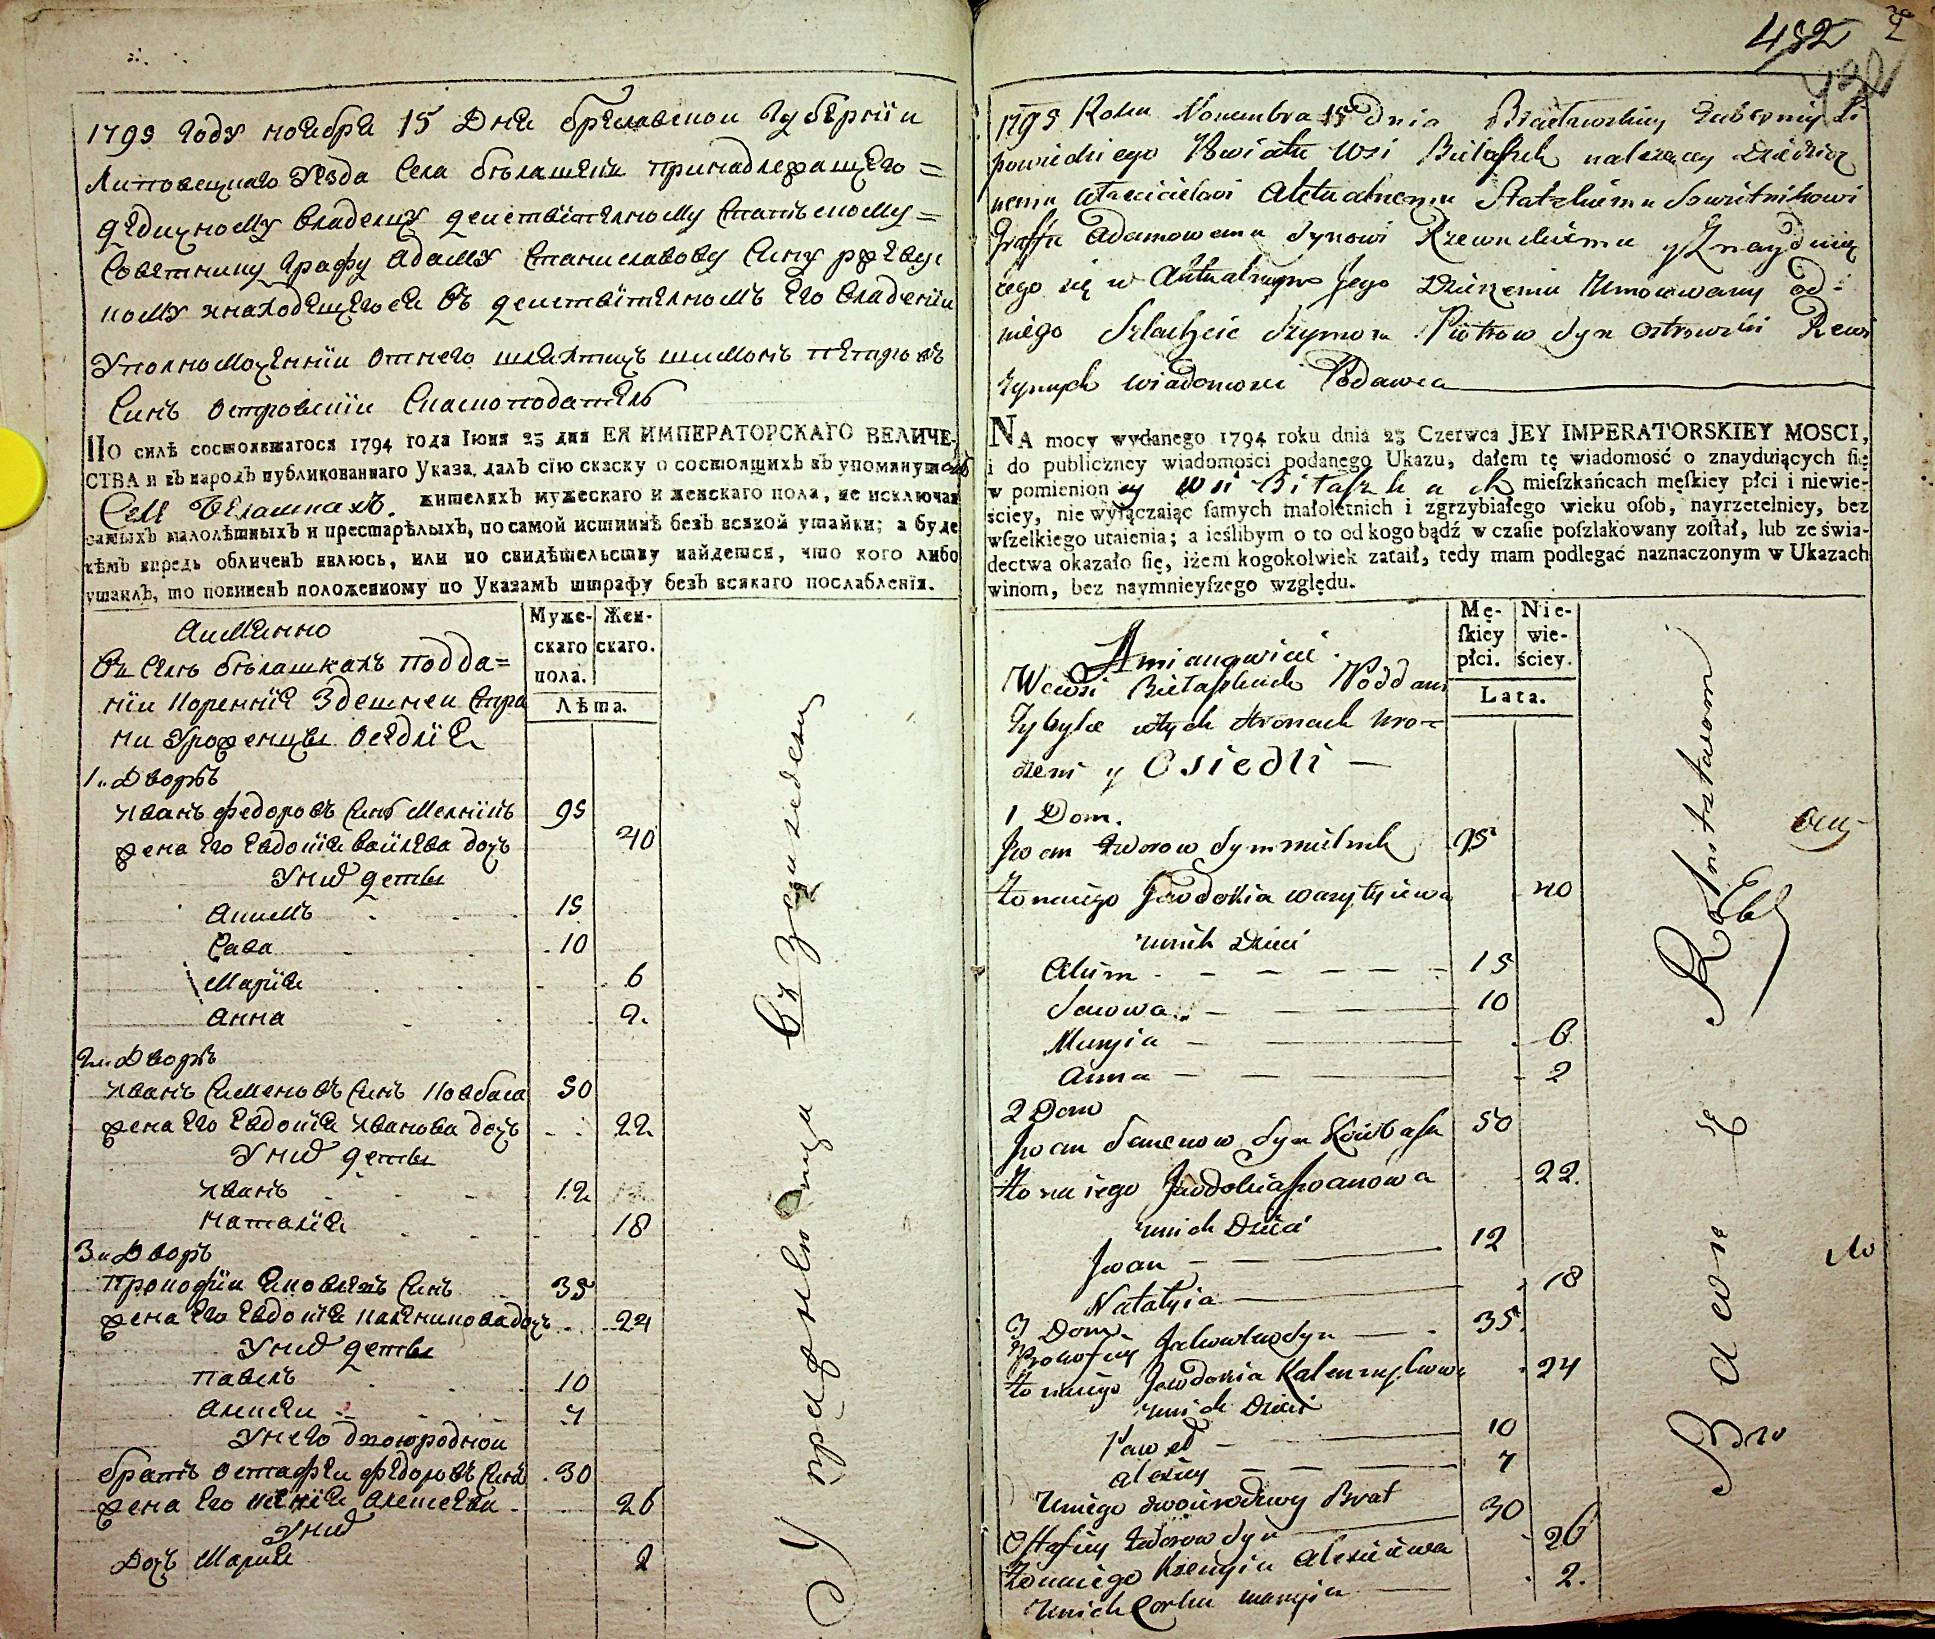 1795 году ноября 15 дня браславской губернїи
Липовецкаго уезда села белашокъ принадлежащего =
дедичному владелцу действителному статскому =
советнику графу адаму станиславову сину ржевус
кому находящегося въ действителномъ его владении
уполномоченнїи отнего шляхтичъ шимонъ петровъ
синъ островскїи сказкоподатель
ПО силѣ состоявшагося 1794 года Іюня 23 дня ЕЯ ИМПЕРАТОРСКАГО ВЕЛИЧЕ-
СТВА и въ народъ публикованнаго Указа, далъ сїю скаску о состоящихъ въ упомянутомъ
Селе Белашкахъ. жителяхъ мужескаго и женскаго пола, не исключая
самыхъ малолѣтныхъ и престарѣлыхъ, по самой истиннѣ безъ всякой утайки; а буде
кѣмъ впредь обличенъ явлюсь, или по свидѣтельству найдется, что кого либо
утаилъ, то повиненъ положенному по Указамъ штрафу безъ всякаго послабленїя.
Муже-скаго пола. Жен-скаго.
Лѣта.
Аимянно
въ селе белашкахъ подда=
нїи коренние здешней стра
ни уроженцы оседлїе
1.. дворъ
иванъ федоровъ синъ мелникъ 95
жена его евдокїя василева дочъ 40
у них дети
Акимъ 15
Сава 10
Марїя 6
Анна 2.
2й дворъ
иванъ семеновъ синъ ковбаса 50
жена его евдокїя иванова дочъ 22
у них дети
иванъ 12
наталїя 18
3й дворъ
прокофїи яковлевъ синъ 35
жена его евдокїя калениковадочъ 24
у них дети
павелъ 10
алексеи 7
у него двоюродной
братъ остафеи федоровъ синъ 30
жена его ксенїя алексеева 26
у них
дочъ марїя 2
482
1795 Roku Nowembra 15 Dnia Bracławskiey Gubernij Li
powieckiego Powiatu Wsi Biełaszek należącey Dziedicz
nemu właścicielowi Aktualnemu Statskiemu Sowietnikowi
Graffu Adamowemu Synowi Rzewuskiemu y Znayduią
cego się w Aktualnym Jego Dzierżeniu Umocowany od
niego Szlachcic Szymon Piotrow Syn Ostrowski Rewi
zynych wiadomosci Podawca
NA mocy wydanego 1794 roku dnia 23 Czerwca JEY IMPERATORSKIEY MOSCI,
i do publiczney wiadomości podanego Ukazu, dałem tę wiadomość o znayduiących ſię
w pomienioney wsi Biłaszkach mieſzkańcach męſkiey płci i niewie-
ściey, nie wyłączaiąc ſamych małoletnich i zgrzybiałego wieku oſob, nayrzetelniey, bez
wſzelkiego utaienia; a ieślibym o to od kogo bądź w czaſie poſzlakowany zoſtał, lub ze świa-
dectwa okazało ſię, iżem kogokolwiek zataił, tedy mam podlegać naznaczonym w Ukazach
winom, bez naymnieyſzego względu.
Mę-ſkiey płci. Nie-wie-ściey.
Lata.
Amianowicie.
Wewsi Biełaszkach Poddani
Zybyłe wtych stronach uro=
dzeni y Osiedli
1 Dom.
Jwan Fedorow Syn mielnik 95
żona iego Jewdokia wasylijewa 40
unich Dzieci
Akim 15
Sawa 10
Maryia 6
Anna 2
2 Dom
Jwan Semenow Syn Kowbasa 50
żona iego Jewdokia Jwanowa 22.
unich Dzieci
Jwan 12
Natalyia 18
3 Dom
Prokofiy Jakowlew Syn 35.
żona iego Jewdokia Kalenykowa 24
unich Dzieci
Paweł 10
Alexiey 7
Uniego dwoiurodny Brat
Ostafiey Fedorow Syn 30
żona iego Ksenyia Alexieiewa 26
Unich Corka maryia 2.